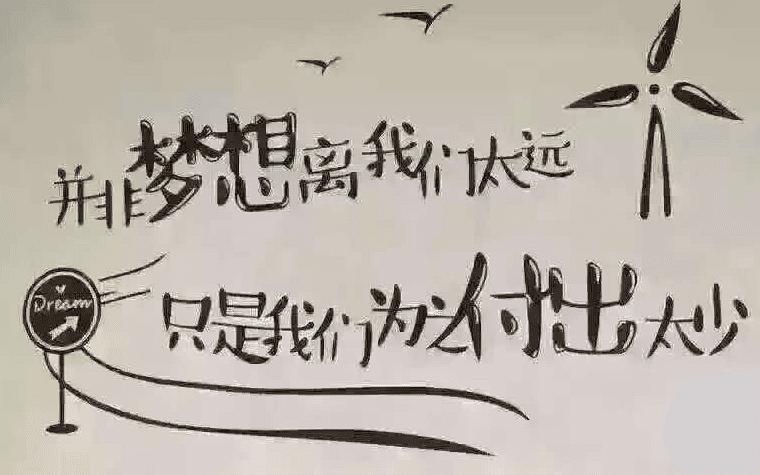 并非梦想离我们太远
Dream
只是我们为之付出太少